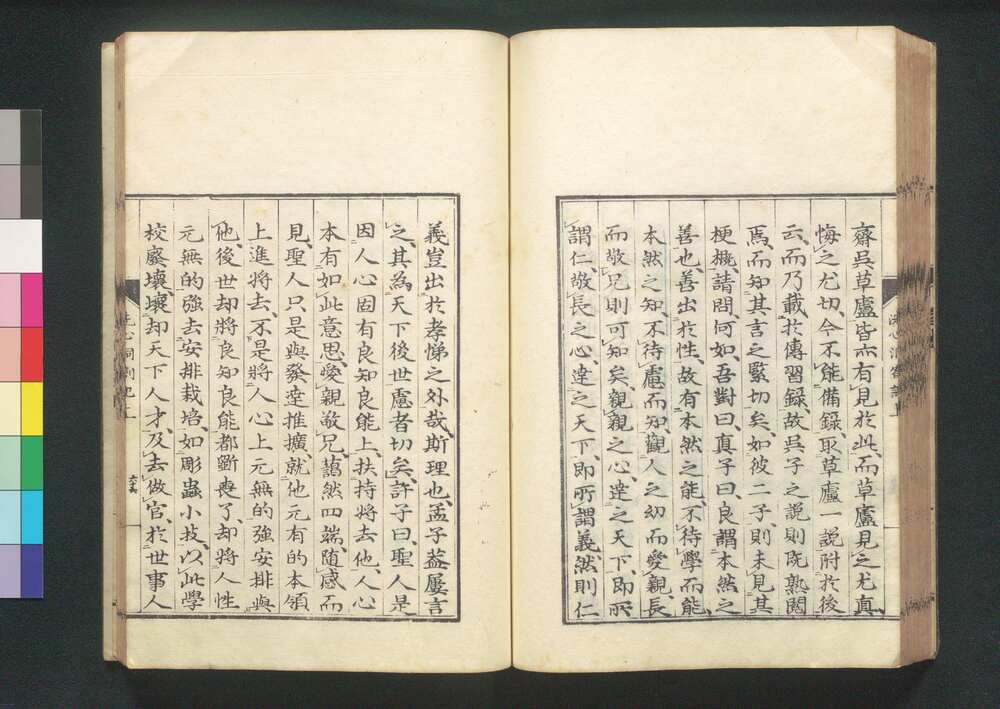 齋吳草廬皆亦有見於此、而草廬見之尤真、
悔之尤切、今不能備録、取草廬一説附於後
云、而乃載於傳習録、故吳子之説則既熟閱
焉、而知其言之緊切矣、如彼二子、則未見其
梗概、請問、何如、吾對曰、真子曰、良謂本然之
善也、善出於性、故有本然之能、不待學而能、
本然之知、不待慮而知、觀人之幼而愛親、長
而敬兄、則可知矣、親親之心、達之天下、即所
謂仁、敬長之心、達之天下、即所謂義、然則仁
義豈出於孝悌之外哉、斯理也、孟子蓋屢言
之、其為天下後世慮者切矣、許子曰、聖人是
因人心固有良知良能上、扶持將去、他人心
本有如此意思、愛親敬兄、藹然四端、隨感而
見、聖人只是與發達推擴、就他元有的本領
上進將去、不是將人心上元無的強安排與
他、後世却將良知良能都斷喪了、却將人性
元無的強去安排栽培、如彫蟲小技、以此學
校廢壞、壞却天下人才、及去做官、於世事人
洗心洞劄記上